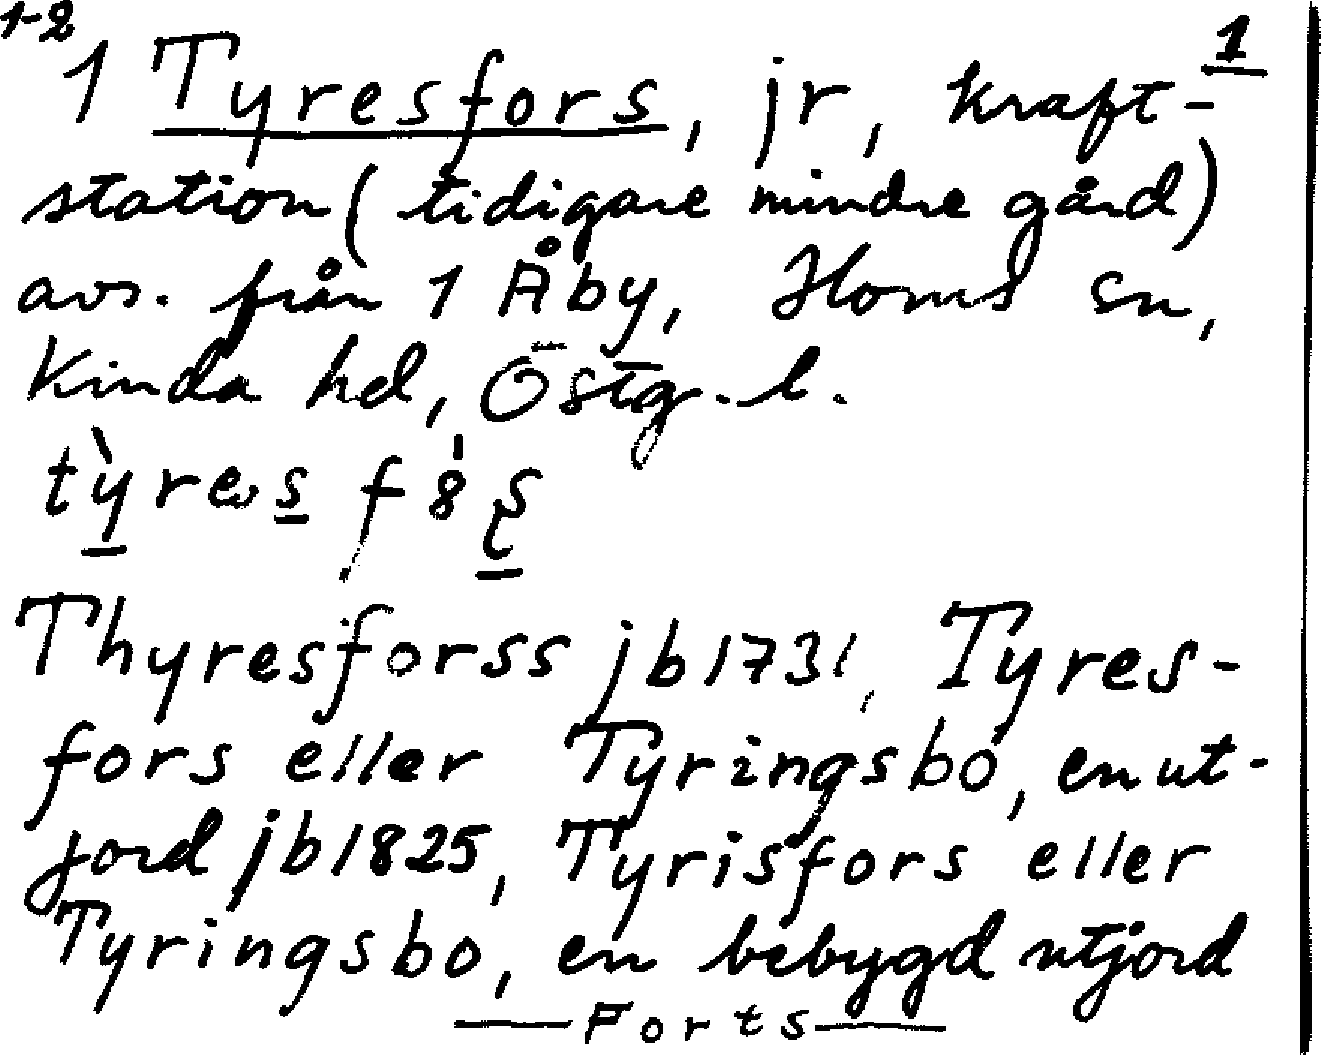 1-2
1
1 Tyresfors, jr, kraft-
station (tidigare mindre gård)
avs. från 1 Åby, Horns sn,
Kinda hd, Östg. l.
tỳres f8ș
Thyresforss jb 1731, Tyres-
fors eller Tyringsbo, en ut-
jord jb 1825, Tyrisfors eller
Tyringsbo, en bebygd utjord
—Forts—